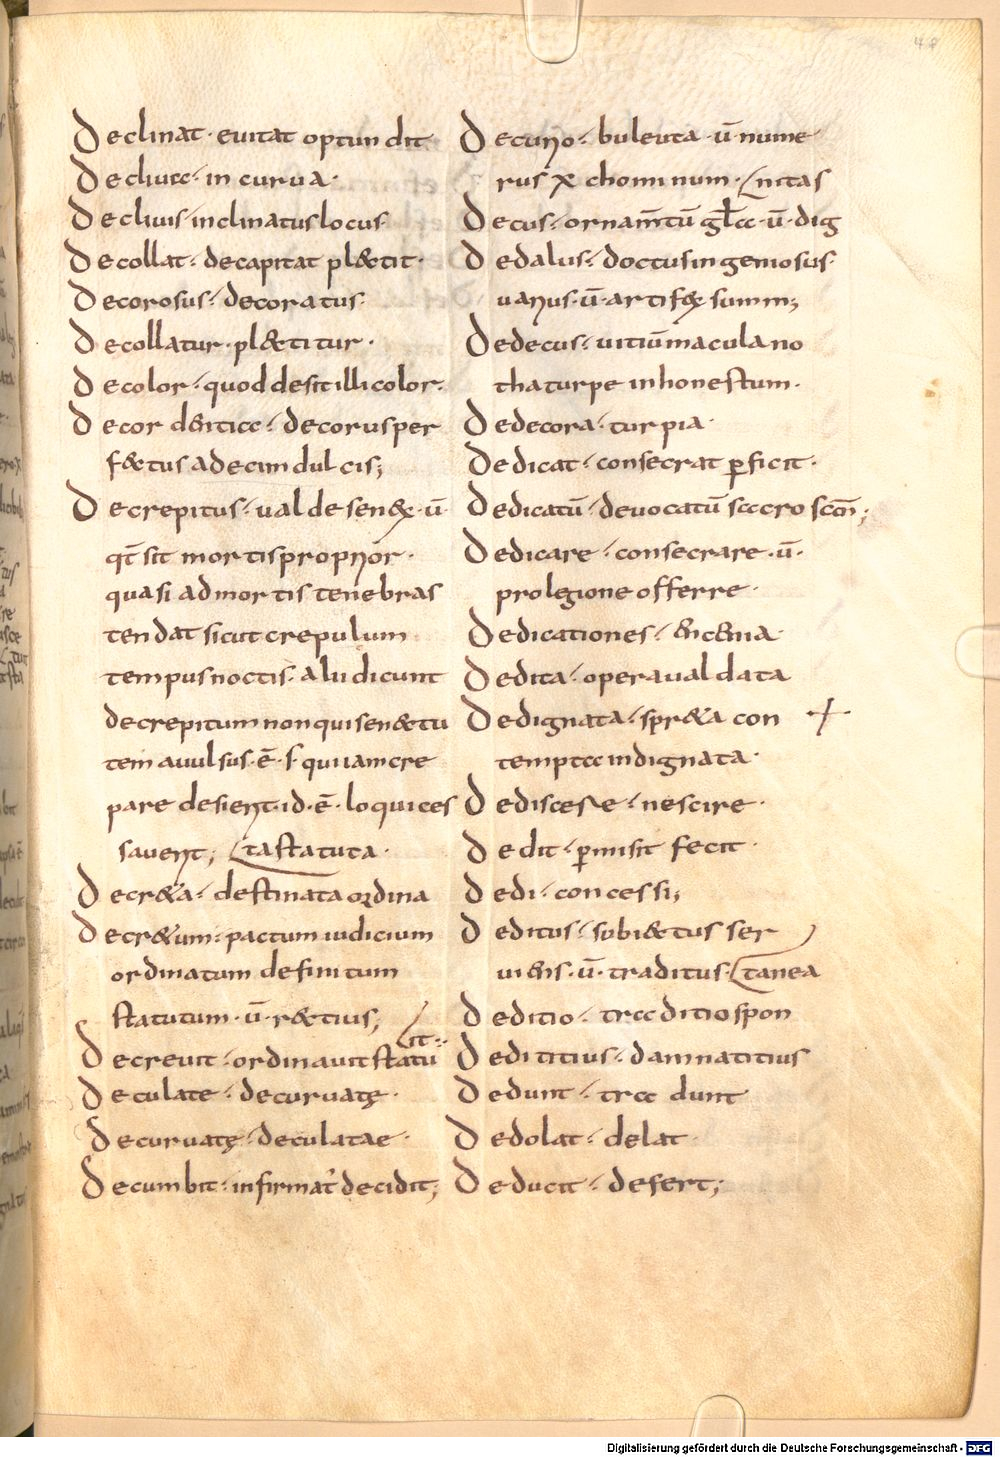 48
Declinat· euitat optundit
Decliua· incurua·
Decliuis· inclinatus locus
Decollat· decapitat plectit·
Decorosus· decoratus·
Decollatur· plectitur·
Decolor· quod desit illi color·
Decor deitica· decorus per
fectus ad ecim dulcis;
Decrepitus· ualde senex· ū
qđ sit mortis proprior·
quasi ad mortis tenebras
tendat sicut crepulum
tempus noctis· alii dicunt
decrepitum non qui senectu
tem auulsus· ē· s qui iam cre
pare desiert· id· ē· loqui ces
sauert; tastatuta·
Decreta· destinata ordina
Decretum· pactum iudicium
ordinatum definitum
statutum· ū· rectius; it·
Decreuit· ordinauit statu
Deculate· decuruatę·
Decuruatę· deculatae·
Decumbit· infirmat decidit;
Decurio· buleuta· ū· nume
rus x hominum· nitas
Decus· ornam̄tū gła· ū· dig
Dedalus· doctus ingeniosus
uarius· ū· artifex summ;
Dedecus· uitiū macula no
tha turpe inhonestum·
Dedecora· turpia·
Dedicat· consecrat pficit·
Dedicatū· deuocatū sacro scōn;
Dedicare· consecrare· ū·
pro legione offerre·
Dedicationes· encenia·
Dedita· opera ual data
Dedignata· spreta con +
tempta indignata·
Dediscere· nescire·
Dedit· pmisit fecit·
Dedi· concessi;
Deditus· subiectus ser
uiens· ū· traditus· tanea
Deditio· tra ditio spon
Dedititius· damnatitius
Dedunt· tra dunt
Dedolat· delat·
Deducit· defert;
Digitalisierung gefördert durch die Deutsche Forschungsgemeinschaft - DFG